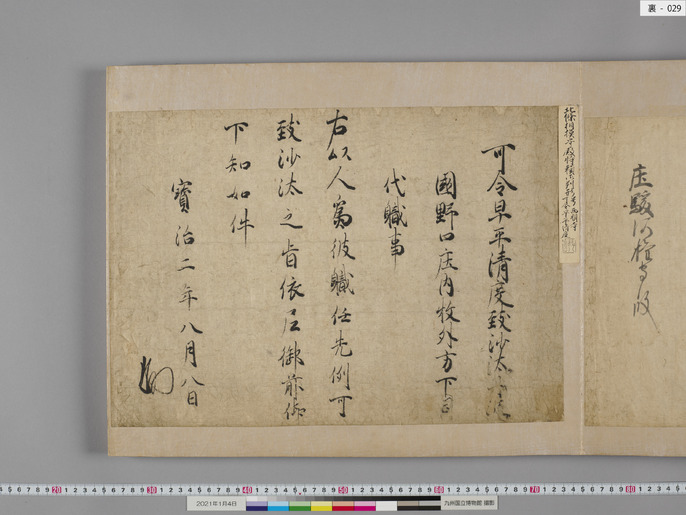 裏 - 029
庄駿河権守殿
可令早平清度致沙汰
國野口庄内牧外方下司
代職事
右以人為彼職任先例可
致沙汰之旨依尼御前仰
下知如件
寳治二年八月八日
2021年1月4日
九州国立博物館 撮影